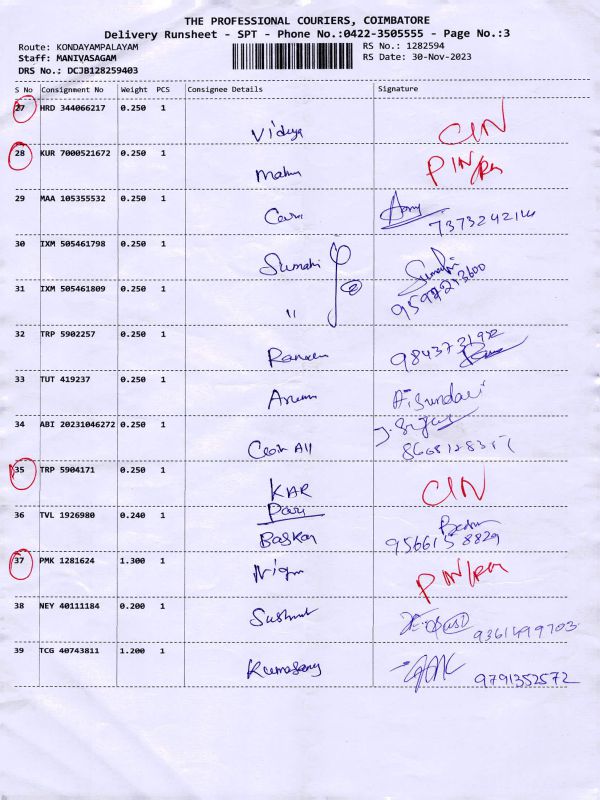 THE PROFESSIONAL COURIERS, COIMBATORE
Delivery Runsheet - SPT - Phone No.:0422-3505555 - Page No.:3
Route: KONDAYAMPALAYAM RS No.: 1282594
Staff: MANIVASAGAM RS Date: 30-Nov-2023
DRS No.: DCJB128259403
S No Consignment No Weight PCS Consignee Details Signature
27 HRD 344066217 0.250 1
Vidhya CIN
28 KUR 7000521672 0.250 1
PIN/RM
29 MAA 105355532 0.250 1
7373242144
30 IXM 505461798 0.250 1
Sumathi
31 IXM 505461809 0.250 1
" 2 9597213600
32 TRP 5902257 0.250 1
33 TUT 419237 0.250 1
A. Sundari
34 ABI 20231046272 0.250 1
35 TRP 5904171 0.250 1
KAR CIN
36 TVL 1926980 0.240 1
Pari
Baskar 9566158829
37 PMK 1281624 1.300 1
PIN/RM
38 NEY 40111184 0.200 1
9361499703
39 TCG 40743811 1.200 1
Kumarasamy 9791352572